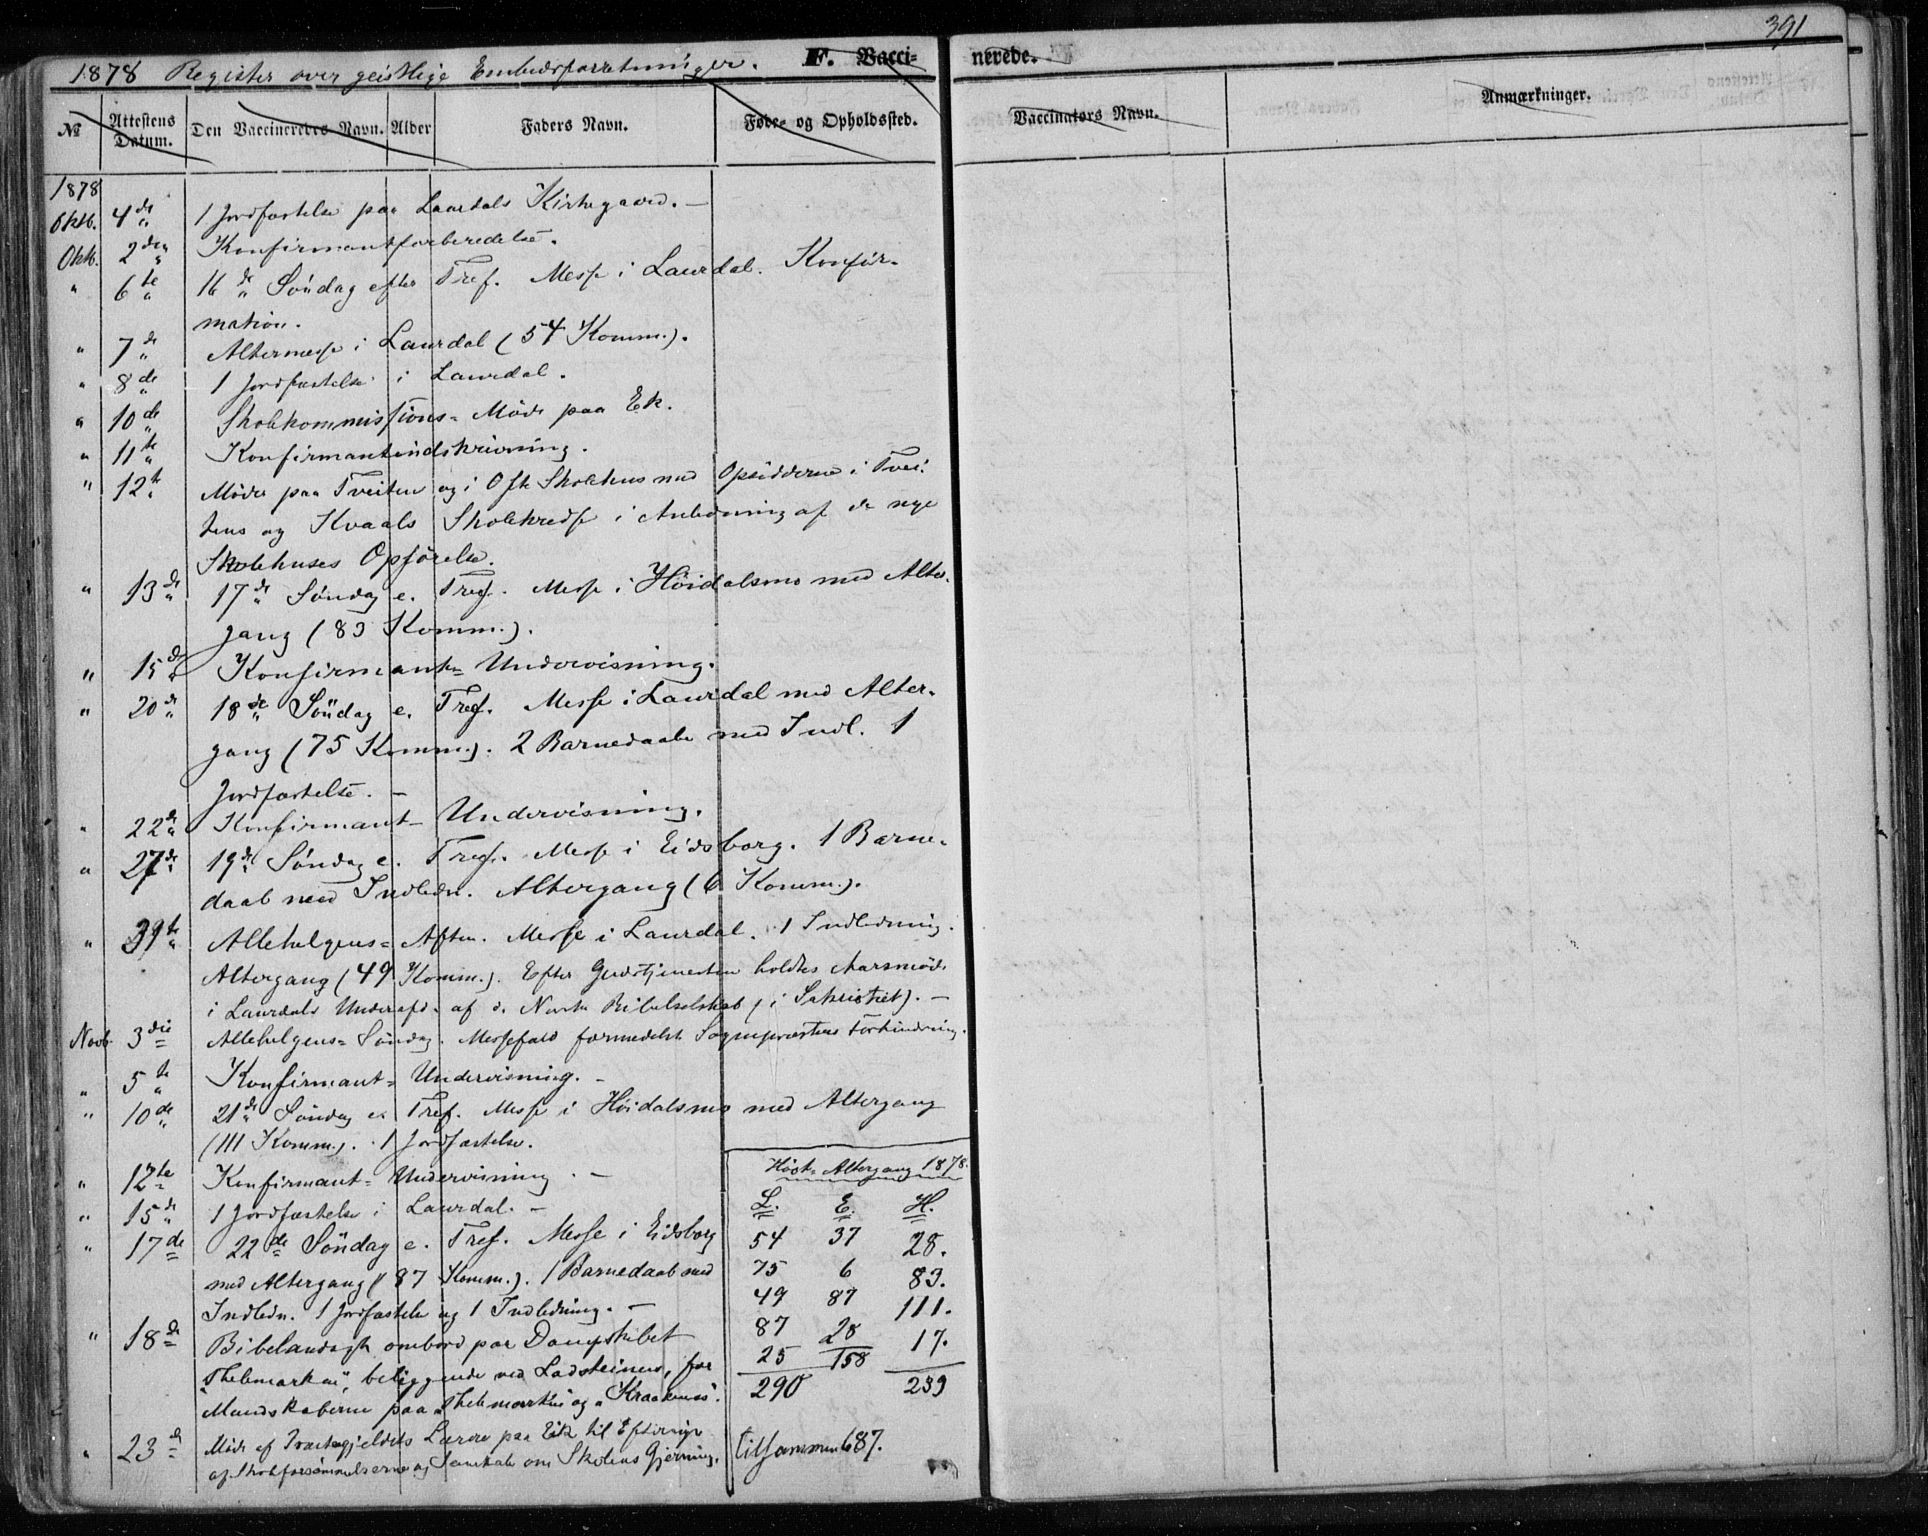 391
1878 Register over geistlige Embedsforretninger. F. Vacci-nerede.
№ Attestens Datum. Den Vaccineredes Navn. Alder Faders Navn. Føde- og Opholdssted. Vaccinators Navn. Anmærkninger.
1878
Oktb. 4de 1 Jordfæstelse paa Laurdals Kirkegaard. —
Oktb. 2den Konfirmantforberedelse.
" 6te 16de Søndag efter Tref. Messe i Laurdal. Konfir-
mation.
" 7de Altermesse i Laurdal (54 Komm.).
" 8de 1 Jordfæstelse i Laurdal.
" 10de Skolekommissions-Møde paa Ek.
" 11te Konfirmantindskrivning.
" 12te Møder paa Tveiten og i Ofte Skolehus med Opsidderne i Tvei-
tens og Kvaals Skolekredse i Anledning af de nye
Skolehuses Opførelse.
" 13de 17de Søndag e. Tref. Messe i Høidalsmo med Alter-
gang (83 Komm.).
" 15de Konfirmant-Undervisning.
" 20de 18de Søndag e. Tref. Messe i Laurdal med Alter-
gang (75 Komm.). 2 Barnedaabe med Indl. 1
Jordfæstelse. —
" 22de Konfirmant-Undervisning.
" 27de 19de Søndag e. Tref. Messe i Eidsborg. 1 Barne-
daab med Indledn. Altergang (6 Komm.).
" 31te Allehelgens-Aften. Messe i Laurdal. 1 Indledning.
Altergang (49 Komm.). Efter Gudstjenesten holdtes Aarsmøde
i Laurdals Underafd. af d. Norske Bibelselskab (i Sakristiet). —
Novb. 3die Allehelgens-Søndag. Messefald formedelst Sognepræstens Forhindring.
" 5te Konfirmant-Undervisning. —
" 10de 21de Søndag e. Tref. Messe i Høidalsmo med Altergang
(111 Komm.). 1 Jordfæstelse.
" 12te Konfirmant-Undervisning. —
" 15de 1 Jordfæstelse i Laurdal. —
" 17de 22de Søndag e. Tref. Messe i Eidsborg
med Altergang (87 Komm.). 1 Barnedaab med
Indledn. 1 Jordfæstelse og 1 Indledning. —
" 18de Bibelandagt ombord paa Dampskibet
"Thelemarken", beliggende ved Ladsteinen, for
Mandskaberne paa "Thelemarken" og "Kraakenes".
" 23de Møde af Præstegjeldets Lærere paa Eik til Eftersyn
af Skoleforsømmelserne og Samtale om Skolens Gjerning.
Høst-Altergang 1878.
L. E. H.
54 37 28.
75 6 83.
49 87 111.
87 28 17.
25 158
290 239
tilsammen 687.